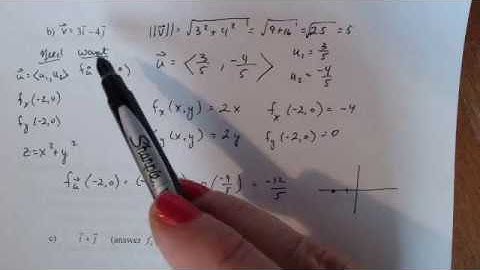 b) v⃗ = 3i⃗ - 4j⃗
||V⃗|| = √3² + 4² = √9+16 = √25 = 5
Need want
u⃗ = ⟨u₁, u₂⟩
u⃗ = ⟨3/5, -4/5⟩
u₁ = 3/5
u₂ = -4/5
fₓ(-2,0)
fₓ(x,y) = 2x fₓ(-2,0) = -4
f_y(-2,0)
(x,y) = 2y f_y(-2,0) = 0
z = x² + y²
f_u⃗(-2,0) = (-4/5) = -12/5
c) i⃗ + j⃗ (answer
Sharpie